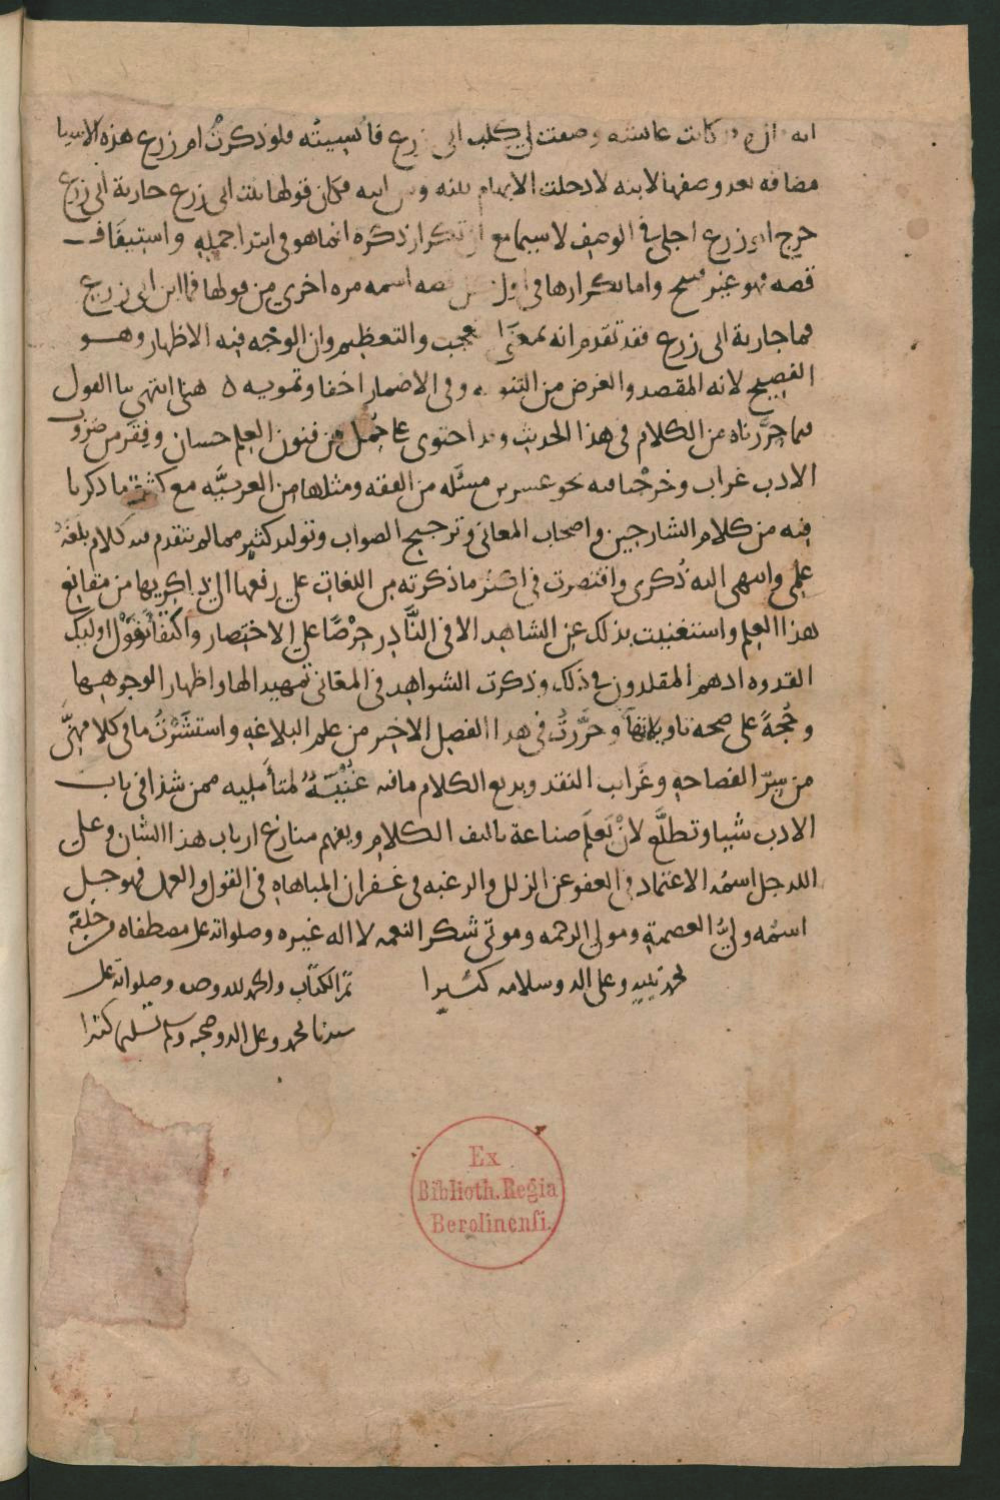 كانت عائشة وصفت لي كلب ابي زرع فأنسيته فلو ذكرت ام زرع هذه الاشيا
مضافه بعد وصفها لابنه لادخلت الابهام وبين ابيه فكان قولها بنت ابي زرع جارية ابي زرع
خرج ابو زرع اجلي في الوصف لاسيما مع تكرار ذكره انما هو في ابتدا جمله واستيناف
قصه فهو غير قبيح واما تكرارها في اول كل قصه اسمه مره اخرى من قولها فما ابن ابي زرع
فما جارية ابي زرع فقد تقدم انه بمعنى التعجب والتعظيم وان الوجه فيه الاظهار وهو
الفصيح لانه المقصد والغرض من التنويه وفي الاضمار اخفا وتمويه ٥ هنا انتهى بنا القول
فيما حررناه من الكلام في هذا الحديث وقد احتوى على جمل من فنون العلم حسان وفقر من ضروب
الادب غراب وخرجنا منه نحو عشرين مسئله من الفقه ومثلها من العربيه مع كثرة ما ذكرنا
فيه من كلام الشارحين واصحاب المعاني وترجيح الصواب وتوليد كثير مما لم يتقدم فيه كلام بلغه
علمي وانتهى اليه ذكرى واقتصرت في اكثر ما ذكرته من اللغات على رفعها الى ذاكريها من متقاني
هذا العلم واستغنيت بذلك عن الشاهد الا في النادر حرصا على الاختصار واكتفا بقول اوليك
القدوه اذ هم المقلدون في ذلك وذكرت الشواهد في المعاني تمهيدا لها واظهارا لوجوهها
وحجة على صحه تاويلاتها وحررت في هذا الفصل الاخير من علم البلاغه واستشرت ما في كلامهن
من سر الفصاحه وغراب النقد وبديع الكلام ما فيه غنية لمتأمليه ممن شذا في باب
الادب شيا وتطلع لان يعلم صناعة تاليف الكلام ويفهم منازع ارباب هذا الشان وعلى
الله جل اسمه الاعتماد في العفو عن الزلل والرغبه في غفران المباهاه في القول والعمل فهو جل
اسمه ولي العصمة ومولي الرحمه وموتي شكر النعمه لا اله غيره وصلواته على مصطفاه من خلقه
محمد نبيه وعلى اله وسلامه كثيرا
تم الكتاب والحمد لله وحده وصلواته على
سيدنا محمد وعلى اله وصحبه وسلم تسليما كثيرا
Ex
Biblioth. Regia
Berolinensi.